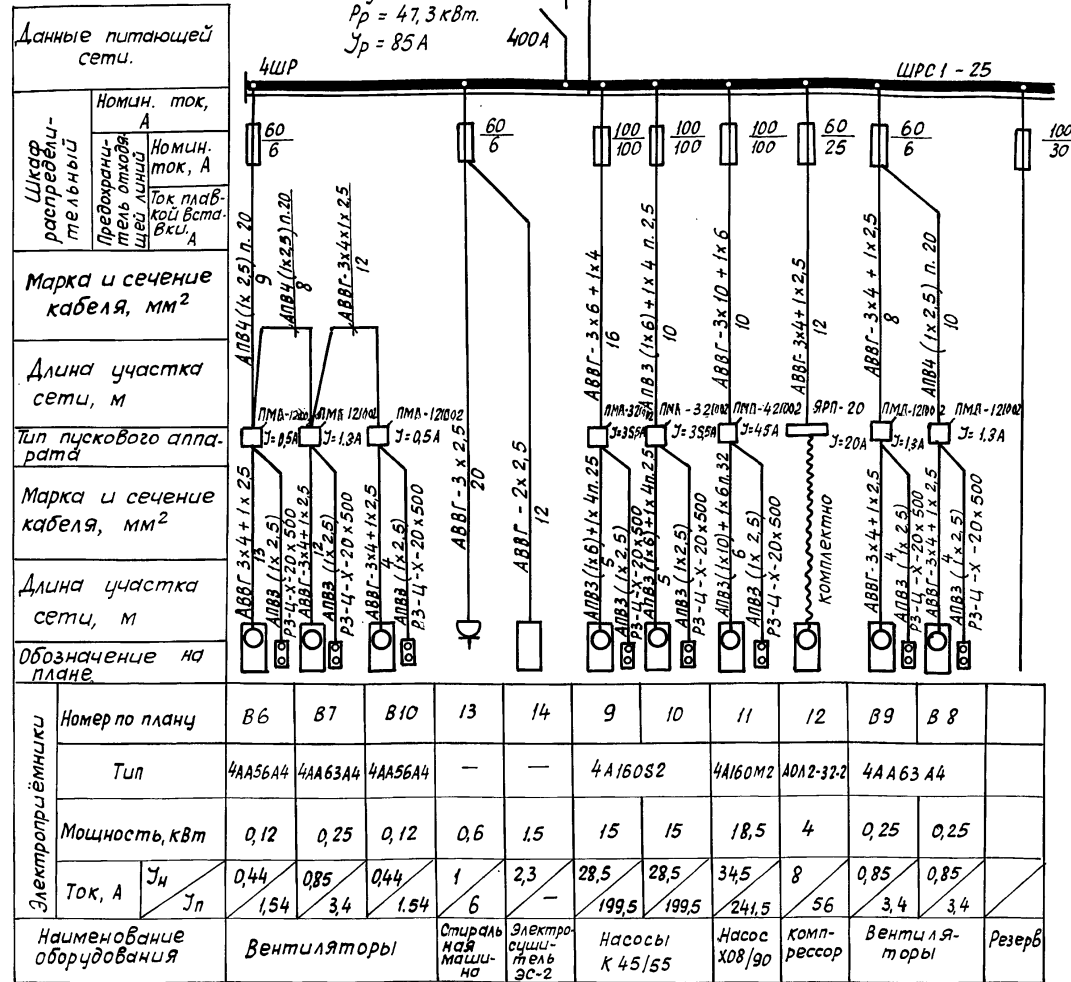 Рр = 47,3 кВт.
Jр = 85 А
400А
Данные питающей
сети.
4ШР
ШРС1 - 25
Шкаф
распредели-
тельный
Номин. ток,
А
Предохрани-
тель отходя-
щей линии
Номин.
ток, А
Ток плав-
кой вста-
вки, А
60
6
60
6
100
100
100
100
100
100
60
25
60
6
100
30
Марка и сечение
кабеля, мм²
Длина участка
сети, м
АПВ4 (1х 2,5) п. 20
9
АПВ4 (1х2,5) п.20
8
АВВГ-3х4х1х2,5
12
АВВГ- 3 х 6 + 1х4
16
АПВ3 (1х6) + 1х 4 п. 2,5
10
АВВГ- 3х10 + 1х6
10
АВВГ- 3х4+ 1х2,5
12
АВВГ- 3х4 + 1х2,5
8
АПВ4 (1х2,5) п. 20
10
Тип пускового аппа-
рата
ПМЛ 121002
J=1,3А
ПМЛ-121002
J=0,5А
J=0,5А
J=35,5А
ПМЛ - 321002
J=35,5А
ПМЛ-421002
J=45А
ЯРП- 20
J=20А
ПМЛ-121002
J=1,3А
ПМЛ-121002
J= 1,3А
Марка и сечение
кабеля, мм²
Длина участка
сети, м
АВВГ 3х4 + 1х 2,5
13
АПВ3 (1х2,5)
Р3-Ц-Х-20х500
АВВГ-3х4+1х2,5
12
АПВ3 (1х2,5)
Р3-Ц-Х-20х500
АВВГ-3х4+1х2,5
4
АПВ3 (1х2,5)
Р3-Ц-Х-20х500
АВВГ-3 х 2,5
20
АВВГ - 2х 2,5
12
АПВ3 (1х6)+1х4п.25
5
АПВ3 (1х2,5)
Р3-Ц-Х-20х500
АПВ3 (1х6)+1х4п.25
5
АПВ3 (1х2,5)
Р3-Ц-Х-20х500
АПВ3 (1х10)+1х6п.32
6
АПВ3 (1х2,5)
Р3-Ц-Х-20х500
комплектно
АВВГ-3х4+1х2,5
4
АПВ3 (1х2,5)
Р3-Ц-Х-20х500
АВВГ-3х4+1х2,5
4
АПВ3 (1х2,5)
Р3-Ц-Х-20х500
Обозначение на
плане
Электроприёмники
Номер по плану В6 В7 В10 13 14 9 10 11 12 В9 В8
Тип 4АА56А4 4АА63А4 4АА56А4 — — 4А160S2 4А160М2 АОЛ2-32-2 4АА63А4
Мощность, кВт 0,12 0,25 0,12 0,6 1.5 15 15 18,5 4 0,25 0,25
Ток, А Jн 0,44 0,85 0,44 1 2,3 28,5 28,5 34,5 8 0,85 0,85
Jп 1,54 3,4 1.54 6 — 199,5 199,5 241,5 56 3,4 3,4
Наименование
оборудования
Вентиляторы
Стираль
ная
маши-
на
Электро-
суши-
тель
ЭС-2
Насосы
К 45/55
Насос
Х08/90
комп-
рессор
Вентиля-
торы
Резерв